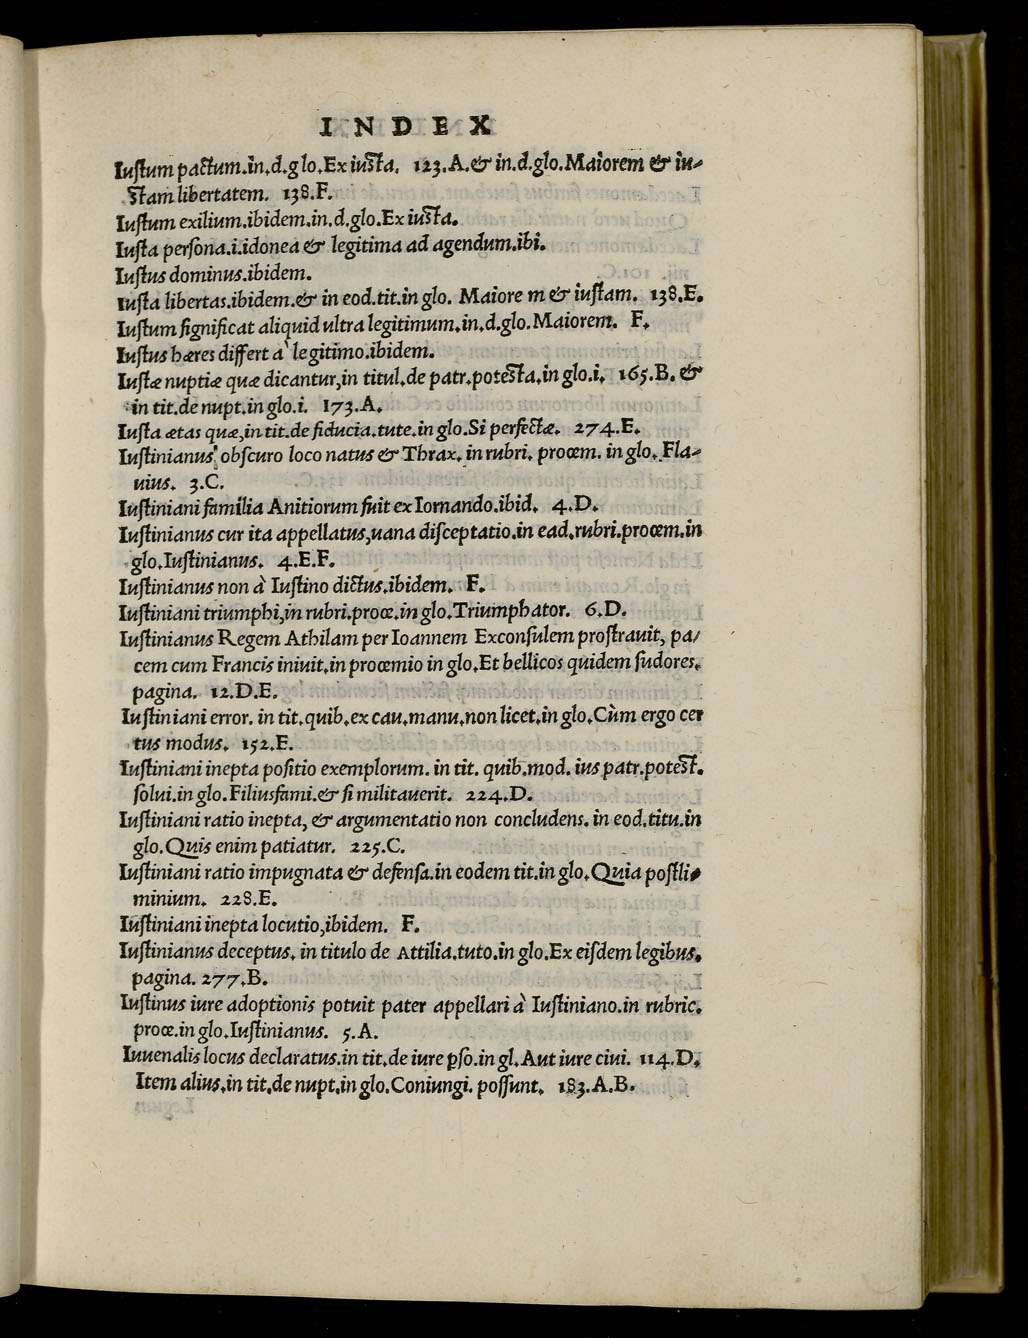 INDEX
Iustum pactum.in.d.glo.Ex iusta. 123.A.& in.d.glo.Maiorem & iu-
stam libertatem. 138.F.
Iustum exilium.ibidem.in.d.glo.Ex iusta.
Iusta persona.i.idonea & legitima ad agendum.ibi.
Iustus dominus.ibidem.
Iusta libertas.ibidem.& in eod.tit.in glo. Maiore m & iustam. 138.E.
Iustum significat aliquid ultra legitimum.in.d.glo.Maiorem. F.
Iustus hæres differt à legitimo.ibidem.
Iustæ nuptiæ quæ dicantur,in titul.de patr.potesta.in glo.i. 165.B. &
in tit.de nupt.in glo.i. 173.A.
Iusta ætas quæ,in tit.de fiducia.tute.in glo.Si perfectæ. 274.E.
Iustinianus obscuro loco natus & Thrax. in rubri. proœm. in glo. Fla-
uius. 3.C.
Iustiniani familia Anitiorum fuit ex Iornando.ibid. 4.D.
Iustinianus cur ita appellatus,uana disceptatio.in ead.rubri.proœm.in
glo.Iustinianus. 4.E.F.
Iustinianus non à Iustino dictus.ibidem. F.
Iustiniani triumphi,in rubri.proœ.in glo.Triumphator. 6.D.
Iustinianus Regem Athilam per Ioannem Exconsulem prostrauit, pa/
cem cum Francis iniuit.in proœmio in glo.Et bellicos quidem sudores.
pagina. 12.D.E.
Iustiniani error. in tit.quib.ex cau.manu.non licet.in glo.Cùm ergo cer
tus modus. 152.E.
Iustiniani inepta positio exemplorum. in tit. quib.mod. ius patr.potest.
solui.in glo.Filiusfami.& si militauerit. 224.D.
Iustiniani ratio inepta, & argumentatio non concludens. in eod.titu.in
glo.Quis enim patiatur. 225.C.
Iustiniani ratio impugnata & defensa.in eodem tit.in glo.Quia postli-
minium. 228.E.
Iustiniani inepta locutio,ibidem. F.
Iustinianus deceptus. in titulo de Attilia.tuto.in glo.Ex eisdem legibus.
pagina. 277.B.
Iustinus iure adoptionis potuit pater appellari à Iustiniano.in rubric.
proœ.in glo.Iustinianus. 5.A.
Iuuenalis locus declaratus.in tit.de iure pso.in gl.Aut iure ciui. 114.D.
Item alius.in tit.de nupt.in glo.Coniungi. possunt. 183.A.B.